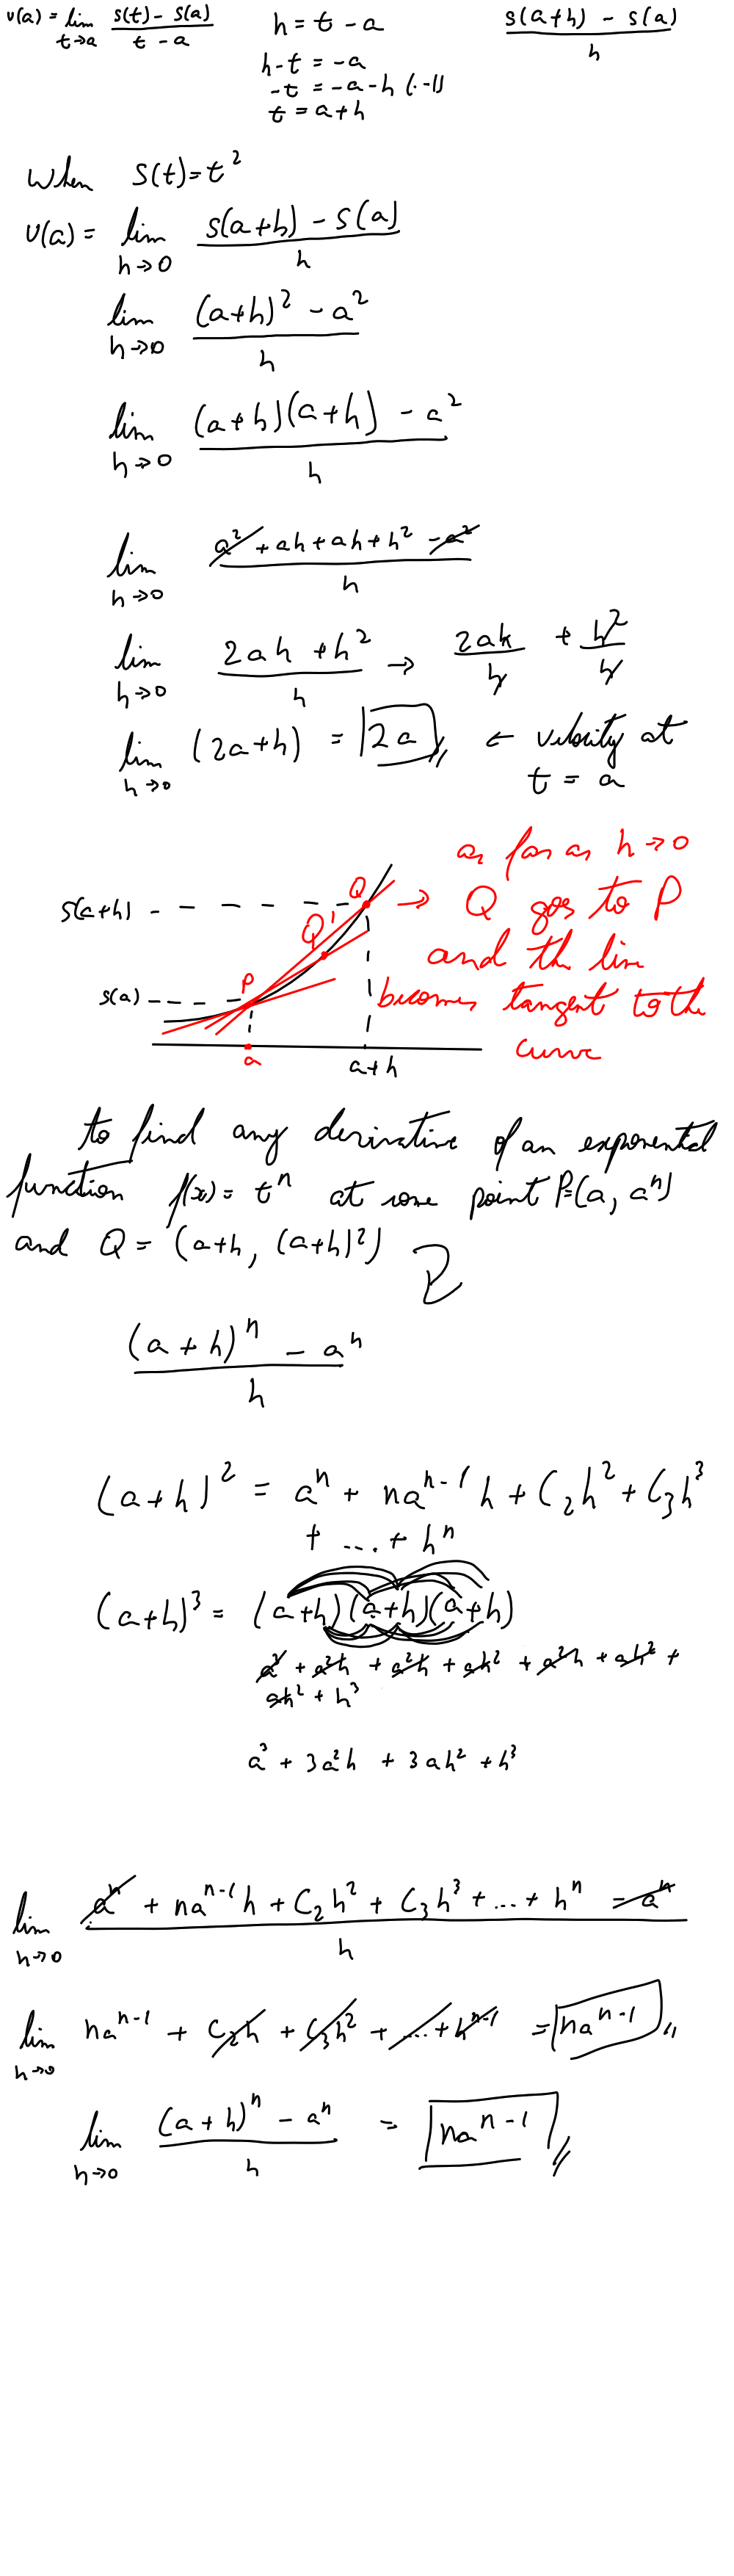 v(a) = lim t→a (s(t) - s(a))/(t - a)
h = t - a
h - t = -a
-t = -a - h (·-1)
t = a + h
(s(a+h) - s(a))/h
When S(t) = t²
v(a) = lim h→0 (s(a+h) - s(a))/h
lim h→0 ((a+h)² - a²)/h
lim h→0 ((a+h)(a+h) - a²)/h
lim h→0 (a² + ah + ah + h² - a²)/h
lim h→0 (2ah + h²)/h → 2ah/h + h²/h
lim h→0 (2a+h) = 2a ← velocity at
t = a
as far as h→0
→ Q goes to P
and the line
becomes tangent to the
curve
s(a+h)
Q
Q'
P
s(a)
a
a+h
to find any derivative of an exponential
function f(x) = tⁿ at some point P=(a, aⁿ)
and Q = (a+h, (a+h)²)
((a+h)ⁿ - aⁿ)/h
(a+h)² = aⁿ + naⁿ⁻¹h + C₂h² + C₃h³
+ ... + hⁿ
(a+h)³ = (a+h)(a+h)(a+h)
a³ + a²h + a²h + ah² + a²h + ah² +
ah² + h³
a³ + 3a²h + 3ah² + h³
lim h→0 (aⁿ + naⁿ⁻¹h + C₂h² + C₃h³ + ... + hⁿ - aⁿ)/h
lim h→0 naⁿ⁻¹ + C₂h + C₃h² + ... + hⁿ⁻¹ = naⁿ⁻¹
lim h→0 ((a+h)ⁿ - aⁿ)/h = naⁿ⁻¹